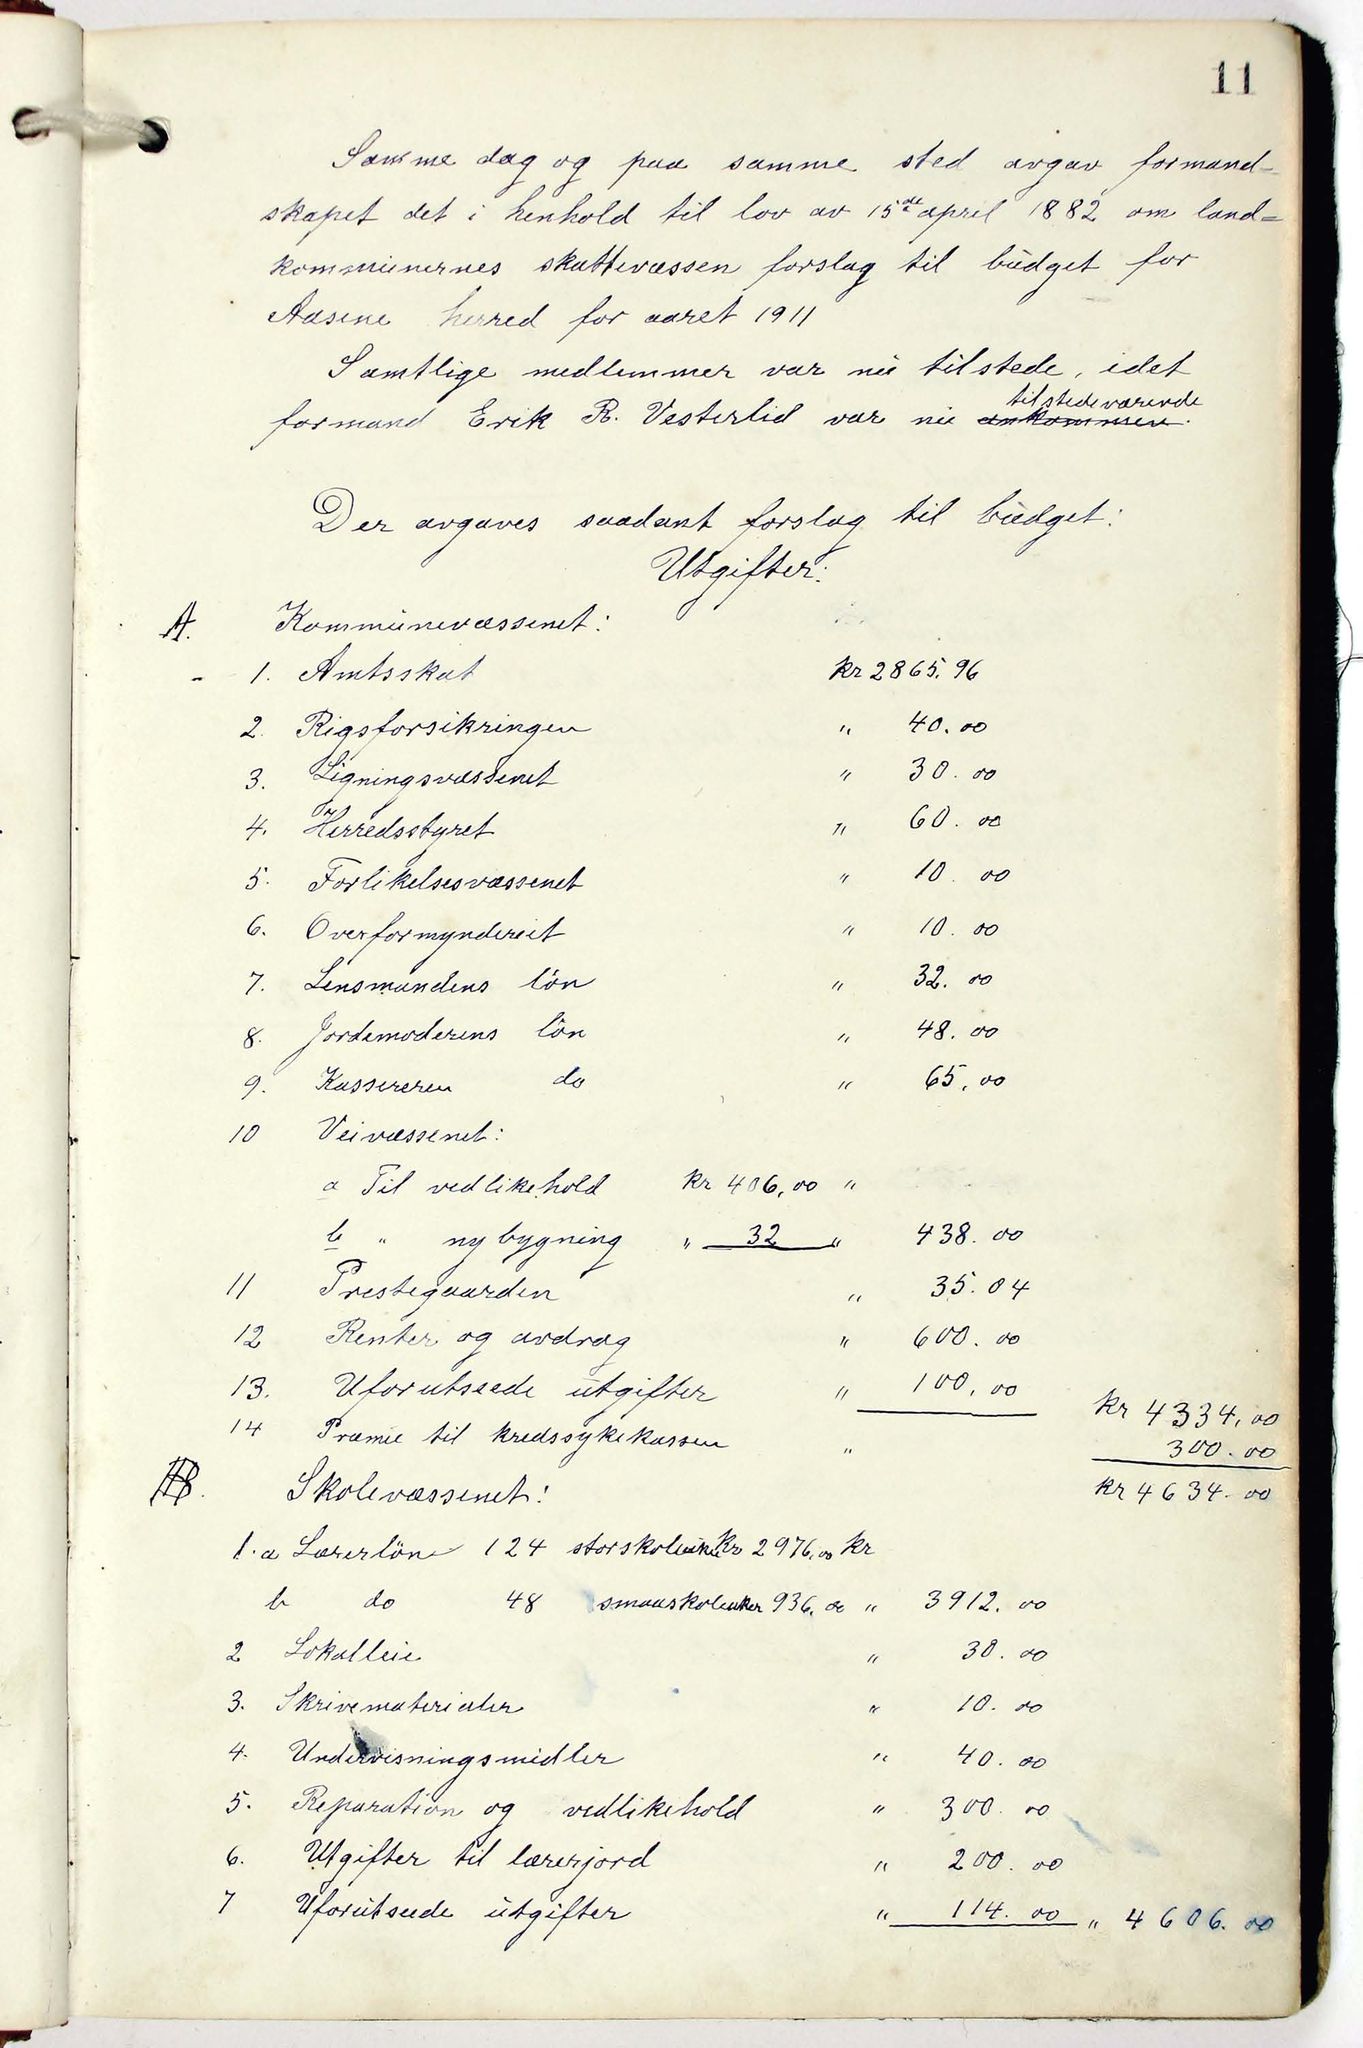 11
Samme dag og paa samme sted avgav formand-
skapet det i henhold til lov av 15de april 1882 om land=
kommunernes skattevæssen forslag til budget for
Aasene herred for aaret 1911
Samtlige medlemmer var nu tilstede, idet
tilstedeværende
formand Erik R. Vesterlid var nu ankommen.
Der avgaves saadant forslag til budget:
Utgifter:
A. Kommunevæssenet:
- 1. Amtsskat kr 2865.96
2. Rigsforsikringen " 40.00
3. Ligningsvæssenet " 30.00
4. Herredsstyret " 60.00
5. Forlikelsesvæssenet " 10.00
6. Overformynderiet " 10.00
7. Lensmandens lön " 32.00
8. Jordemoderens lön " 48.00
9. Kassereren do " 65,00
10 Veivæssenet:
a Til vedlikehold kr 406,00 "
b " nybygning " 32 " 438.00
11 Prestegaarden " 35.04
12 Renter og avdrag " 600.00
13. Uforutseede utgifter " 100,00 kr 4334,00
14 Præmie til kredssykekassen " 300.00
kr 4634.00
B. Skolevæssenet:
1.a Lærerlön 124 storskoleuker Kr 2976,00 kr
b do 48 smaaskoleuker 936.00 " 3912.00
2 Lokalleie " 30.00
3. Skrivematerialer " 10.00
4. Undervisningsmidler " 40.00
5. Reparation og vedlikehold " 300.00
6. Utgifter til lærerjord " 200.00
7 Uforutseede utgifter " 114.00 " 4606.00